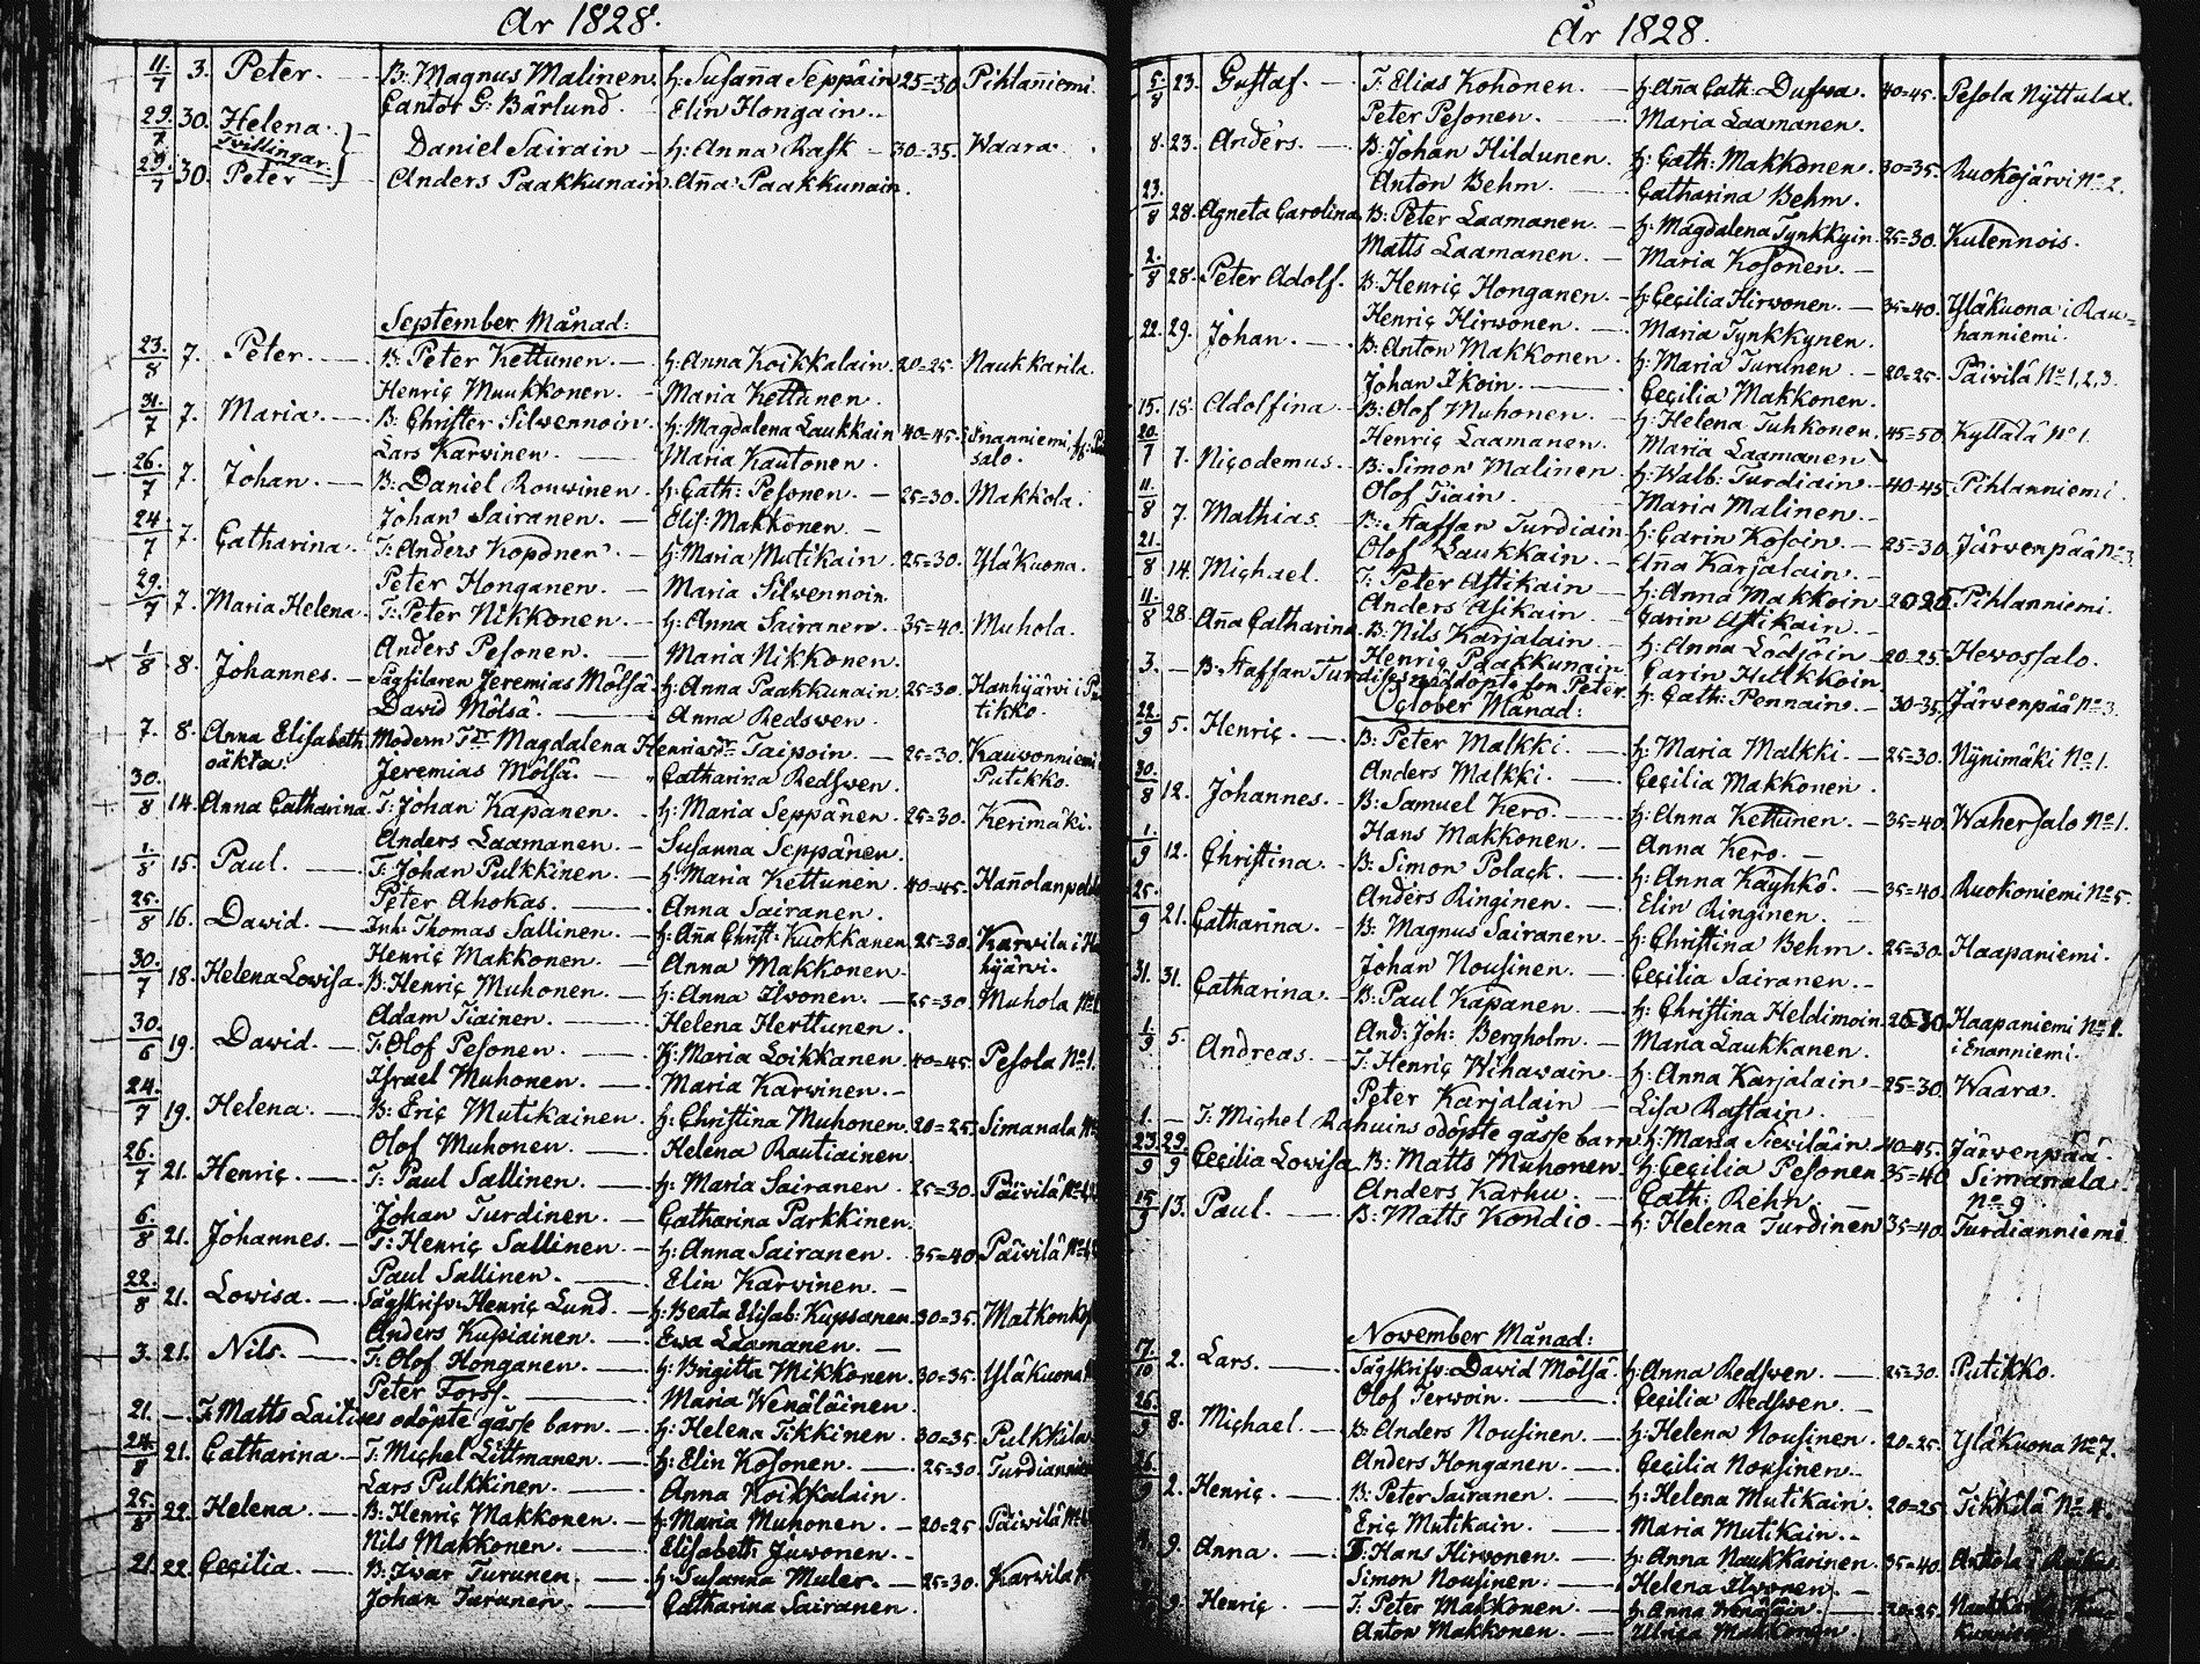 År 1828.
11/7 3. Peter. B: Magnus Malinen. h: Susaña Seppäin 25=30 Pihlañiemi.
Cantor G: Bärlund. Elin Hongain.
29./7 30. Helena. Daniel Sairain h: Anna Rask 30=35. Waara.
Tvillingar.
29./7 30. Peter Anders Paakkunain Aña Paakkunain.
September Månad:
23/8 7. Peter. B: Peter Kettunen. h: Anna Koikkalain. 20=25. Naukkarila.
Henriç Muukkonen. Maria Kettunen.
31./7 7. Maria. B: Christer Silwennoin. h: Magdalena Laukkain 40=45. Enanniemi
Lars Karwinen. Maria Kautonen. salo.
26./7 7. Johan. B: Daniel Rouwinen. h: Cath: Pesonen. 25=30. Makkola.
Johan Sairanen. Elis: Makkonen.
24/7 7. Catharina. T: Anders Koponen. h: Maria Mutikain. 25=30. Yläkuona.
Peter Honganen. Maria Silwennoin.
29./7 7. Maria Helena. T: Peter Nikkonen. h: Anna Sairanen. 35=40. Muhola.
Anders Pesonen. Maria Nikkonen.
1/8 8. Johannes. Sågfilaren Jeremias Mölsä. h: Anna Paakkunain. 25=30. Hanhijärvi i Pu
David Mölsä. Anna Redswen. tikko.
7. 8. Anna Elisabeth Modern Tdr Magdalena Henricsdr Taipoin. 25=30. Kauvonniemi
oäkta. Jeremias Mölsä. Catharina Redswen. Putikko.
30./8 14. Anna Catharina. T: Johan Kapanen. h: Maria Seppänen. 25=30. Kerimäki.
Anders Laamanen. Susanna Seppänen.
1./8 15. Paul. T: Johan Pulkkinen. h: Maria Kettunen. 40=45. Hañolanpelde
Peter Ahokas. Anna Sairanen.
25./8 16. David. Inh: Thomas Sallinen. h: Aña Christ: Kuokkanen. 25=30. Karvila i H
Henriç Makkonen. Anna Makkonen. hijärvi.
30./7 18. Helena Lovisa. B: Henriç Muhonen. h: Anna Ilvonen. 25=30. Muhola No
Adam Tiainen. Helena Herttunen.
30./6 19. David. T: Olof Pesonen. h: Maria Loikkanen. 40=45. Pesola No 1.
Israel Muhonen. Maria Karwinen.
24./7 19. Helena. B: Eriç Mutikainen. h: Christina Muhonen. 20=25. Simanala No
Olof Muhonen. Helena Rautiainen.
26./7 21. Henriç. T: Paul Sallinen. h: Maria Sairanen. 25=30. Päivilä No
Johan Turdinen. Catharina Parkkinen.
6./8 21. Johannes. T: Henriç Sallinen. h: Anna Sairanen. 35=40. Päivilä No
Paul Sallinen. Elin Karvinen.
22./8 21. Lovisa. Sågskrifv: Henriç Lund. h: Beata Elisab: Kupsanen. 30=35. Matkonko
Anders Kupiainen. Ewa Laamanen.
3. 21. Nils. T: Olof Honganen. h: Brigitta Mikkonen. 30=35. Yläkuona
Peter Forss. Maria Wenäläinen.
21. T: Matts Laitises odöpte gåsse barn. h: Helena Tikkinen. 30=35. Pulkkila
24./8 21. Catharina. T: Michel Littmanen. h: Elin Kosonen. 25=30. Turdianniemi
Lars Pulkkinen. Anna Koikkalain.
25./8 22. Helena. B: Henriç Makkonen. h: Maria Muhonen. 20=25 Päivilä No
Nils Makkonen. Elisabeth Juvonen.
21 22. Ceçilia. B: Iwar Turunen. h: Susanna Muler. 25=30. Karvila
Johan Turunen. Catharina Sairanen.
År 1828.
5./8 23. Gustaf. T: Elias Kohonen. h: Aña Cath: Dufva. 40=45. Pesola Nyttulax.
Peter Pesonen. Maria Laamanen.
8. 23. Anders. B: Johan Hildunen. h: Cath: Makkonen. 30=35. Ruokojärvi No 2.
Anton Behm. Catharina Behm.
23./8 28. Agneta Carolina. B: Peter Laamanen. h: Magdalena Tynkkyin. 25=30. Kulennois.
Matts Laamanen. Maria Kosonen.
2./8 28. Peter Adolf. B: Henriç Honganen. h: Ceçilia Hirvonen. 35=40. Yläkuona i Rau=
Henriç Hirwonen. Maria Tynkkynen. hanniemi.
22. 29. Johan. B: Anton Makkonen. h: Maria Turunen. 20=25. Päivilä No 1,2,3.
Johan Ikoin. Ceçilia Makkonen.
15. 18. Adolfina. B: Olof Muhonen. h: Helena Tuhkonen. 45=50. Kyttälä No 1.
Henriç Laamanen. Maria Laamanen
20./7 7. Niçodemus. B: Simon Malinen. h: Walb: Turdiain. 40=45. Pihlanniemi.
Olof Tiain. Maria Malinen.
11./8 7. Mathias. B: Staffan Turdiain. h: Carin Kosoin. 25=30. Järwenpää No 3.
Olof Laukkain. Aña Karjalain.
21./8 14. Michael. T: Peter Astikain h: Anna Makkoin Pihlanniemi.
Anders Asikain Carin Astikain.
11./8 28. Aña Catharina. B: Nils Karjalain. h: Anna Lödjöin 20=25. Hevossalo.
Henriç Paakkunain Carin Hulkkoin.
3. B: Staffan Turdises nöddöpte son Peter. h: Cath: Pennain. 30=35. Järwenpää No 3.
October Månad:
22./9 5. Henriç. B: Peter Malkki. h: Maria Malkki. 25=30. Nynimäki No 1.
Anders Malkki. Ceçilia Makkonen.
30./8 12. Johannes. B: Samuel Kero. h: Anna Kettunen. 35=40. Wahersalo No 1.
Hans Makkonen. Anna Kero.
1./9 12. Christina. B: Simon Polaçk. h: Anna Käyhkö. 35=40. Ruokoniemi No 5.
Anders Ringinen. Elin Ringinen.
25./9 21. Catharina. B: Magnus Sairanen. h: Christina Behm. 25=30. Haapaniemi.
Johan Nousinen. Ceçilia Sairanen.
31. 31. Catharina. B: Paul Kapanen. h: Christina Heldimoin. 25=30. Haapaniemi No 1.
And: Joh: Bergholm. Maria Laukkanen. i Enanniemi.
1./9 5. Andreas. T: Henriç Wihavain h: Anna Karjalain 25=30. Waara.
Peter Karjalain Lisa Rastain.
1. T: Michel Rahuins odöpte gåsse barn. h: Maria Sieviläin. 40=45. Järwenpää.
23./9 29./9 Ceçilia Lovisa. B: Matts Muhonen. h: Ceçilia Pesonen 35=40 Simanala
Anders Karhu. Cath: Rehn. No 9
15/9 13. Paul. B: Matts Kondio. h: Helena Turdinen 35=40. Turdianniemi.
November Månad:
17./10 2. Lars. Sågskrifv: David Mölsä. h: Anna Redswen. 25=30. Putikko.
Olof Terwoin. Ceçilia Redswen.
26./9 8. Michael. B: Anders Nousinen. h: Helena Nousinen. 20=25. Yläkuona No 7.
Anders Honganen. Ceçilia Nousinen.
26./9 2. Henriç. B: Peter Sairanen. h: Helena Mutikain. 20=25. Tikkilä No 4.
Eriç Mutikain. Maria Mutikain.
9. Anna. Hans Hirvonen. h: Anna Naukkarinen. 35=40. Anttola i
Simon Nousinen. Helena Ilvonen.
9. Henriç. T: Peter Makkonen. h: Anna Wenäläin. 20=25.
Anton Makkonen. Ulrica Makkonen.